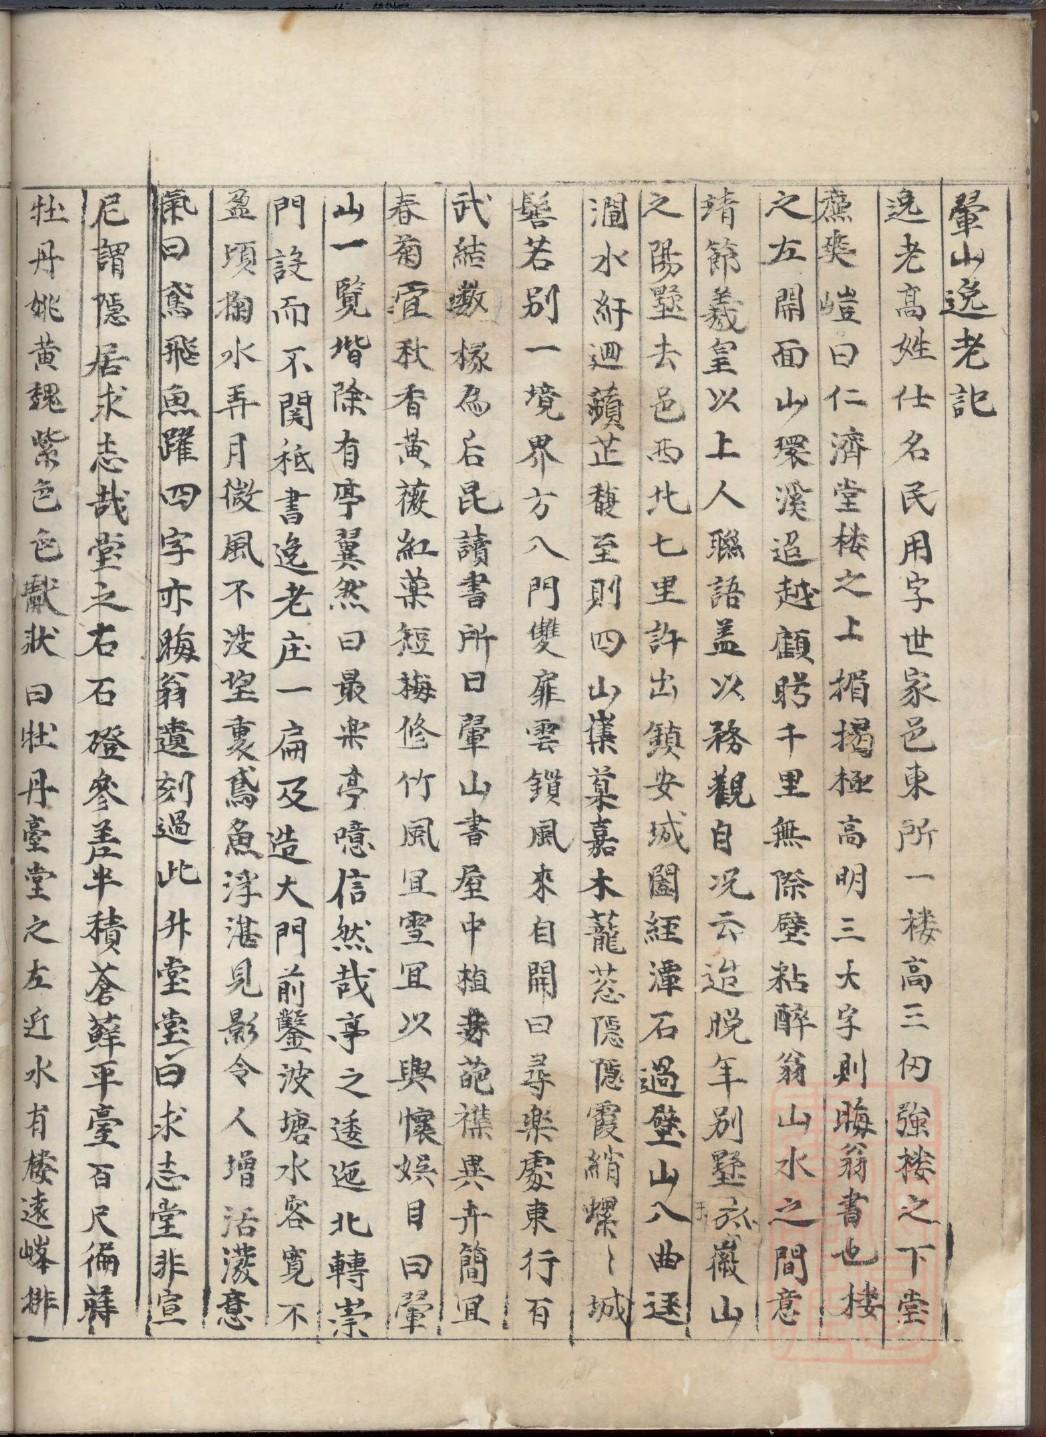 翬山逸老記
逸老高姓仕名民用字世家邑東所一楼高三仞強楼之下堂
廡爽嵦曰仁濟堂楼之上揭極高明三大字則晦翁書也楼
之左開面山環溪迢越顧眄千里無際壁粘醉翁山水之間意
靖節羲皇以上人聯語盖以務觀自况云迨晚年别墅孤嶶山
之陽墅去邑西北七里許出鎮安城闉経潭石過壁山八曲逕
澗水紆迴蘋芷馥至則四山集菓嘉木蘢葱隱隱霞綃螺〻城
髻若别一境界方八門雙扉雲鎖風來自開曰尋楽處東行有
武結數椽為后昆讀書所曰翬山書屋中植葩襍異卉簡宜
春菊宜秋香黃薇紅藥短梅修竹風宜雪宜以與懷娯目曰翬
山一覧堦除有亭翼然曰最楽亭噫信然哉亭之逶迤北轉崇
門設而不関秪書逸老庄一扁及造大門前鑿波塘水容寬不
盈頃掬水弄月微風不波埕裏鳶魚浮湛見影令人增活潑意
氣曰鳶飛魚躍四字亦晦翁遺刻過此升堂堂曰求志堂非宣
尼謂隱居求志哉堂之右石磴參差半積蒼蘚平臺百尺徧蒔
牡丹姚黃魏紫色色獻狀曰牡丹臺堂之左近水有楼遠峰排